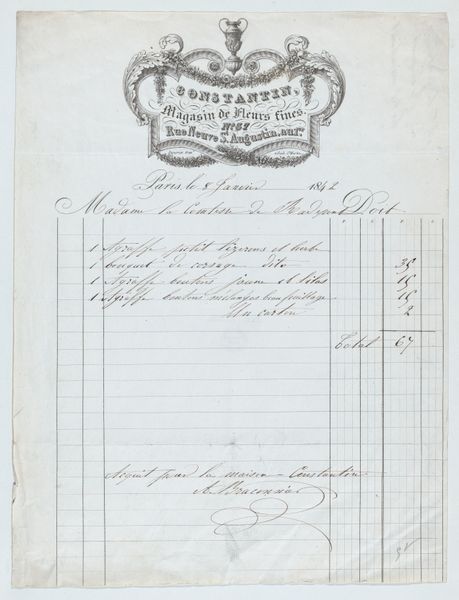 CONSTANTIN,
Magasin de Fleurs fines.
N° 37
Rue Neuve St. Augustin, au 1er.
Paris, le 8 Janvier 1842
Madame la Comtesse de Doit
1 Agraffe petit et herbe
1 bouquet de corsage dito 35
1 Agraffe boutons jaune et lilas 15
1 Agraffe boutons mélangés beau feuillage 15
Un carton 2
Total 67
Acquit pour la maison Constantin
A. Braconnier